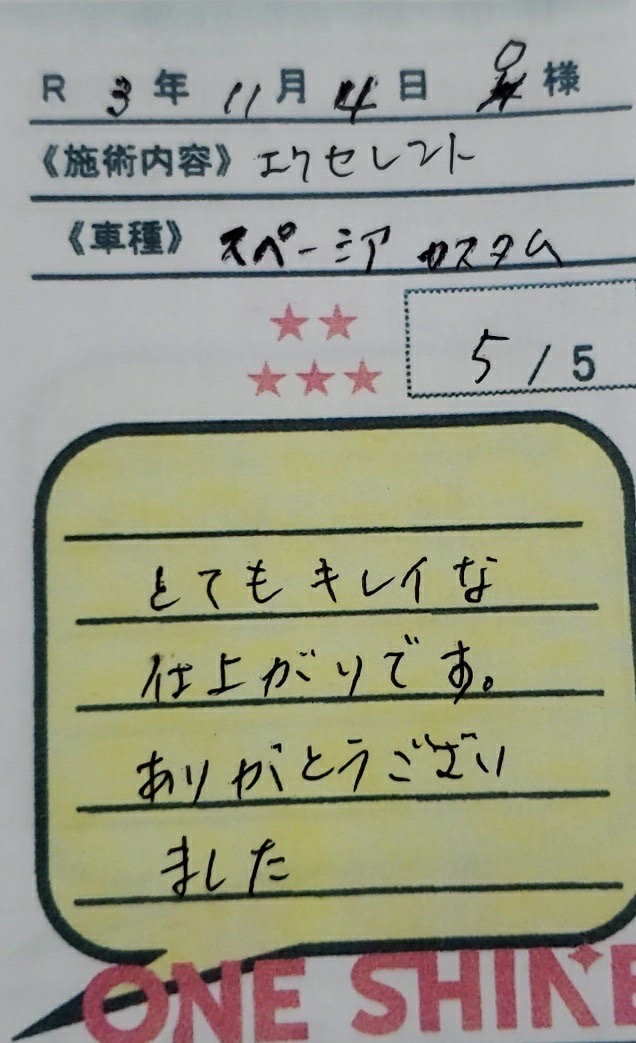 R 3年 11月 4日 様
《施術内容》 エクセレント
《車種》 スペーシア カスタム
★★
★★★
5/5
とてもキレイな
仕上がりです。
ありがとうござい
ました
ONE SHINE